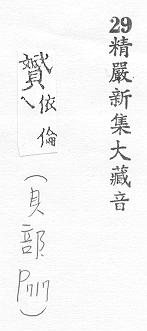 29精嚴新集大藏音
贇依倫
(貝部P717